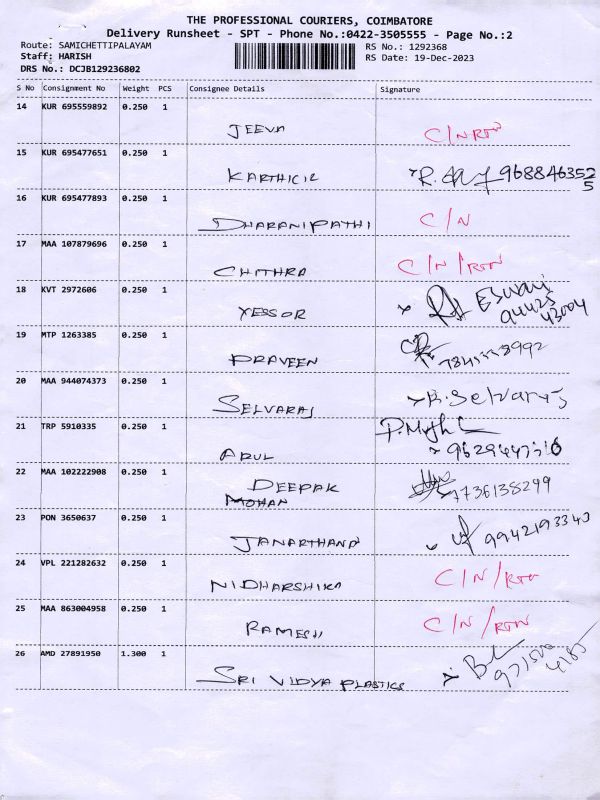 THE PROFESSIONAL COURIERS, COIMBATORE
Delivery Runsheet - SPT - Phone No.:0422-3505555 - Page No.:2
Route: SAMICHETTIPALAYAM RS No.: 1292368
Staff: HARISH RS Date: 19-Dec-2023
DRS No.: DCJB129236802
S No Consignment No Weight PCS Consignee Details Signature
14 KUR 695559892 0.250 1
JEEVA C/N RTN
15 KUR 695477651 0.250 1
KARTHICK R. 9688463525
16 KUR 695477893 0.250 1
DHARANIPATHI C/N
17 MAA 107879696 0.250 1
CHITHRA C/N/RTN
18 KVT 2972606 0.250 1
YESSOR Eswari
94425
43004
19 MTP 1263385 0.250 1
PRAVEEN
20 MAA 944074373 0.250 1
SELVARAJ B. Selvaraj
21 TRP 5910335 0.250 1
ARUL
22 MAA 102222908 0.250 1
DEEPAK
MOHAN 7736138299
23 PON 3650637 0.250 1
JANARTHANA 9942193340
24 VPL 221282632 0.250 1
NIDHARSHIKA C/N/RTO
25 MAA 863004958 0.250 1
RAMESH C/N/RTN
26 AMD 27891950 1.300 1
SRI VIDYA PLASTICS